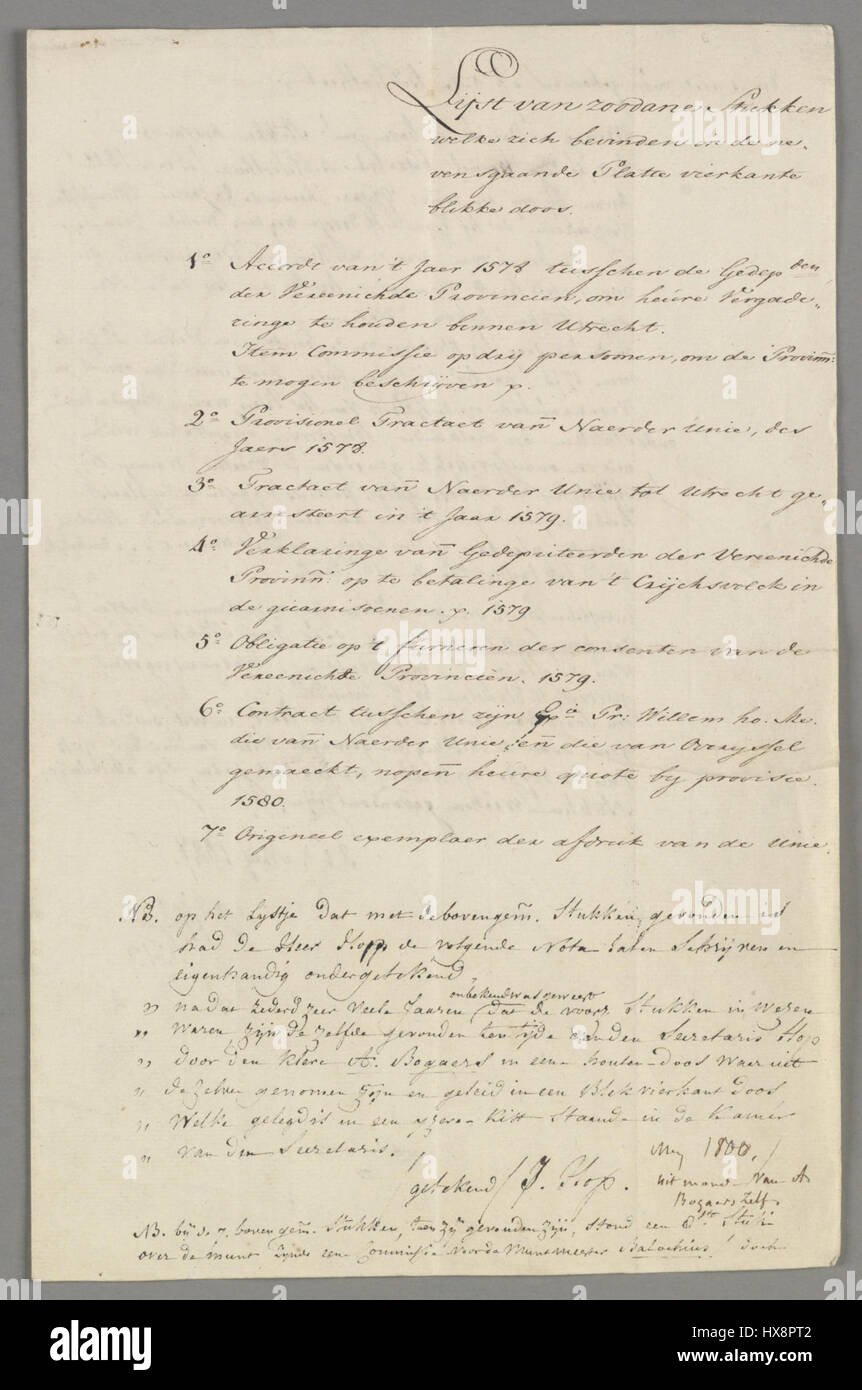 Lijst van zoodane Stukken
welke zich bevinden in de ne„
vensgaande Platte vierkante
blikke doos.
1o Accordt van 't Jaer 1578 tusschen de Gedepden
der Vereenichde Provincien, om heure Vergade„
ringe te houden binnen Utrecht.
Item Commissie op drij persoonen, om de Provinn:
te mogen beschrijven
2o Provisionel Tractaet vann Naerder Unie, des
Jaers 1578.
3o Tractaet vann Naerder Unie tot Utrecht ge„
aresteert in 't Jaar 1579.
4o Verklaringe vann Gedeputeerden der Vereenichde
Provinn: op te betalinge van 't Crijchsvolck in
de guarnisoenen. 1579
5o Obligatie op 't furneren der consenten van de
Vereenichde Provincien. 1579.
6o Contract tusschen zijn Excie Pr: Willem ho. Me.
die vann Naerder Unie, enn die van Overijssel
gemaeckt, nopenn heure quote by provisie.
1580.
7o Origineel exemplaer der afdruk van de Unie.
NB. op het Lystje dat met de bovengem. Stukken gevonden is
had de Heer Hopp de volgende Nota laten Schrijven en
eigenhandig ondergetekend.
„ nadat zederd zeer veele Jaaren onbekend was geweest dat de voorz. Stukken in wezen
„ waren zijn de zelfde gevonden ten tijde van den Secretaris Hop
„ door den Klerc A. Bogaers in een houten doos waar uit
„ dezelven genomen zijn en geleid in een Blik vierkant doos
„ Welke gelegd is in een yzere Kist Staande in de Kamer
„ van den Secretaris.
(getekend) J. Hop.
May 1800.
uit mond van A.
Bogaers zelf.
NB. bij de 7 bovengem. Stukken, toen zij gevonden zijn, stond een 8ste Stuk
over de munt zijnde een Commissie voor de Muntmeester
alamy
Image ID: HX8PT2
www.alamy.com